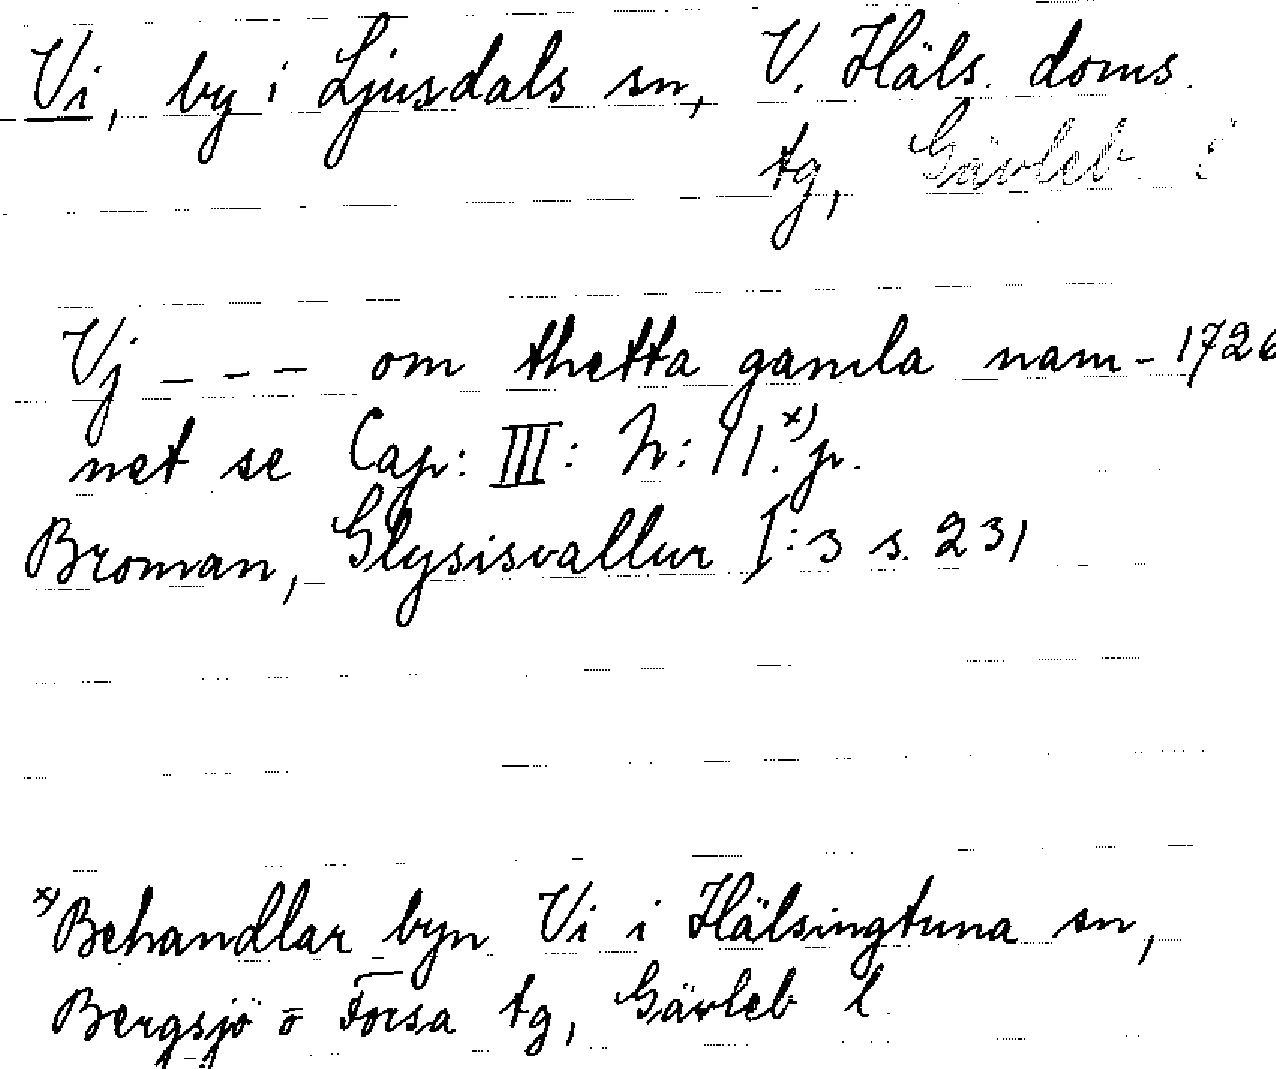 Vi, by i Ljusdals sn, V. Häls. doms.
tg, Gävleb. l
Vj - - - om thetta gamla nam- 1726
net se Cap: III: N: 11.x) p.
Broman, Glysisvallur I:3 s. 231
x) Behandlar byn Vi i Hälsingtuna sn,
Bergsjö o Forsa tg, Gävleb l